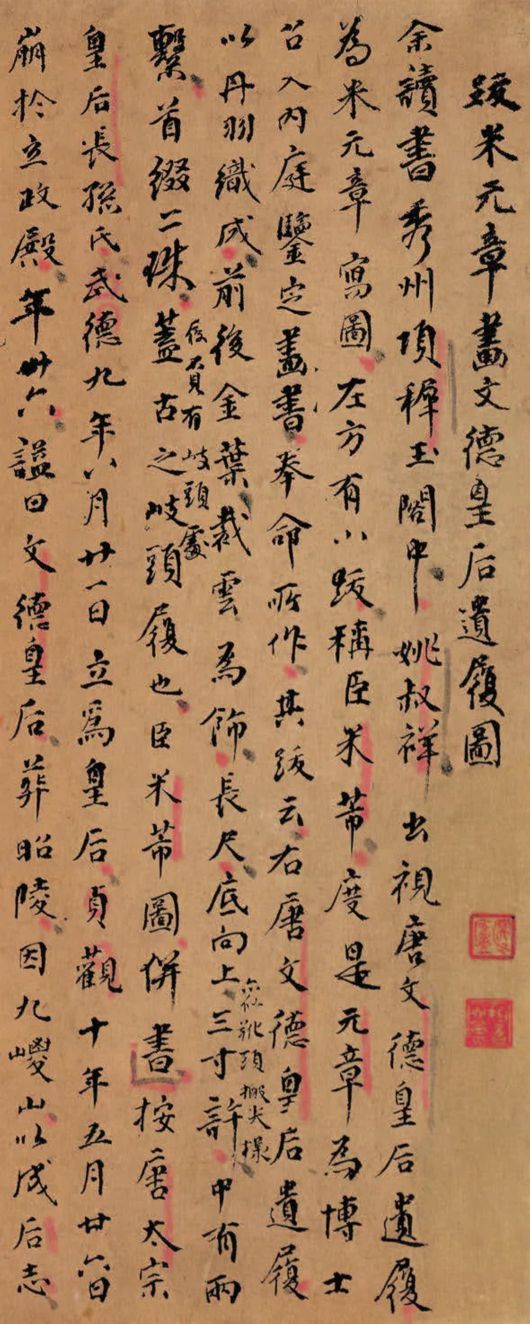 跋米元章畫文德皇后遺履圖
余讀書秀州項穉玉閣中姚叔祥出視唐文德皇后遺履
為米元章寫圖左方有小跋稱臣米芾度是元章為博士
召入内庭鑒定畫書奉命所作其跋云右唐文德皇后遺履
以丹羽織成前後金葉裁雲為飾長尺底向上三寸許中有兩
靴頭
繫首綴二珠蓋古之岐頭履也臣米芾圖併書按唐太宗
後頁有岐頭處
皇后長孫氏武德九年八月廿一日立爲皇后貞觀十年五月廿六日
崩於立政殿年卅六謚曰文德皇后葬昭陵因九嵕山以成后志